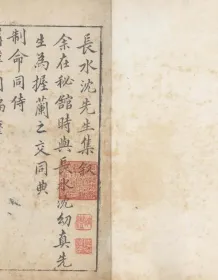 長水沈先生集叙
余在秘館時與長水沈幼真先
生為握蘭之交同典
制命同侍